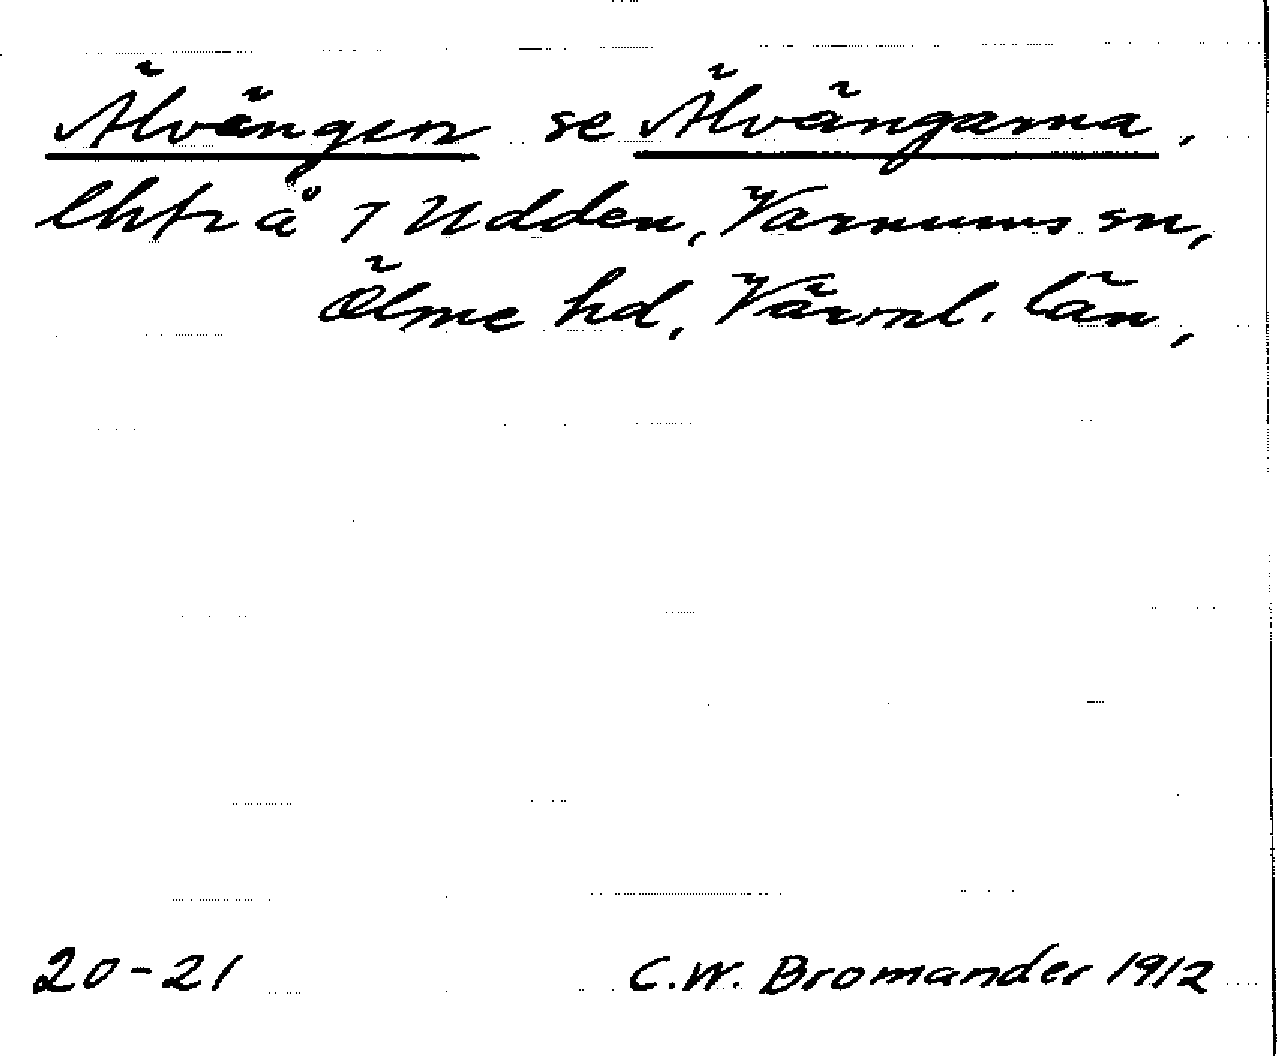 Älvängen se Älvängarna,
lht på 7 Udden, Varnums sn,
Ölme hd, Värml. län,
20-21 C.W. Bromander 1912